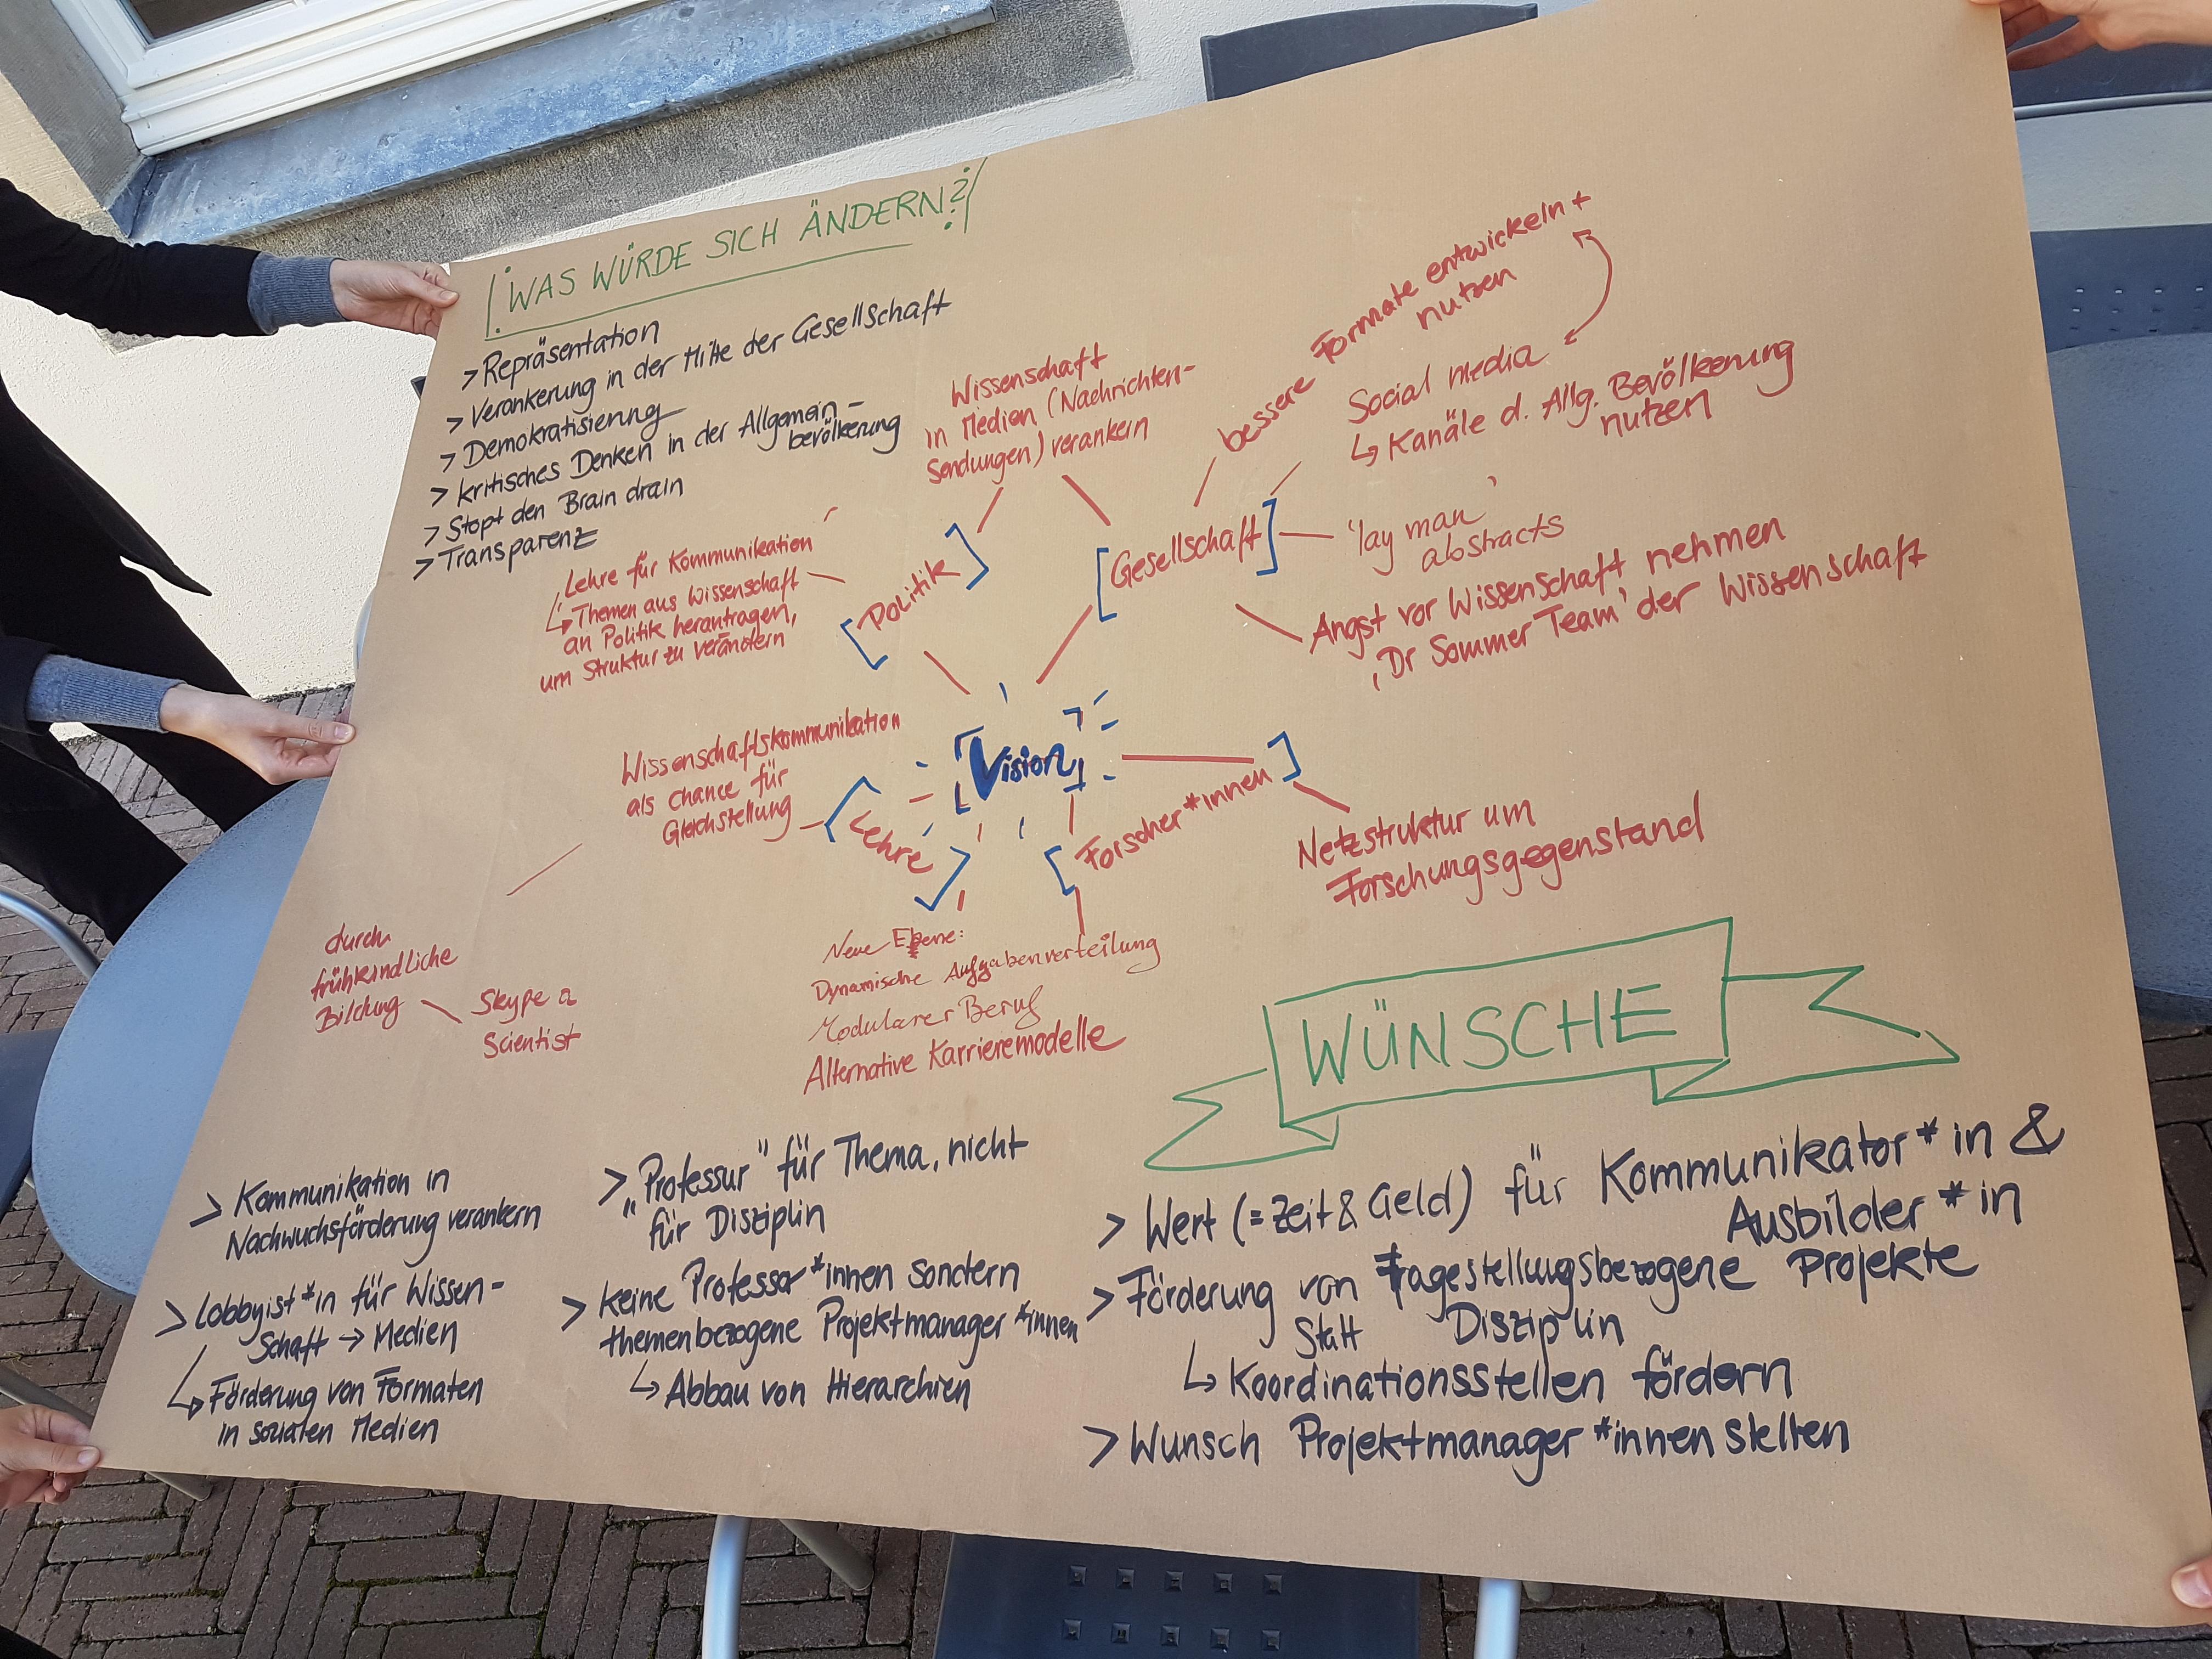 ¡WAS WÜRDE SICH ÄNDERN?!
> Repräsentation
> Verankerung in der Mitte der Gesellschaft
> Demokratisierung
> kritisches Denken in der Allgemein-
bevölkerung
> Stopt den Brain drain
> Transparenz
Wissenschaft
in Medien (Nachrichten-
Sendungen) verankern
bessere Formate entwickeln +
nutzen
Social media
↳ Kanäle d. Allg. Bevölkerung
nutzen
'lay man'
abstracts
Angst vor Wissenschaft nehmen
'Dr Sommer Team' der Wissenschaft
[Gesellschaft]
[Politik]
Lehre für Kommunikation
↳ Themen aus Wissenschaft
an Politik herantragen,
um Struktur zu verändern
[Vision]
Wissenschaftskommunikation
als Chance für
Gleichstellung
[Lehre]
[Forscher*innen]
Netzstruktur um
Forschungsgegenstand
durch
frühkindliche
Bildung
Skype a
Scientist
Neue Ebene:
Dynamische Aufgabenverteilung
Modularer Beruf
Alternative Karrieremodelle
> Kommunikation in
Nachwuchsförderung verankern
> Lobbyist*in für Wissen-
schaft → Medien
↳ Förderung von Formaten
in sozialen Medien
> „Professur" für Thema, nicht
für Disziplin
> keine Professor*innen sondern
themenbezogene Projektmanager*innen
↳ Abbau von Hierarchien
WÜNSCHE
> Wert (= Zeit & Geld) für Kommunikator*in &
Ausbilder*in
> Förderung von Fragestellungsbezogene Projekte
statt Disziplin
↳ Koordinationsstellen fördern
> Wunsch Projektmanager*innen stellen